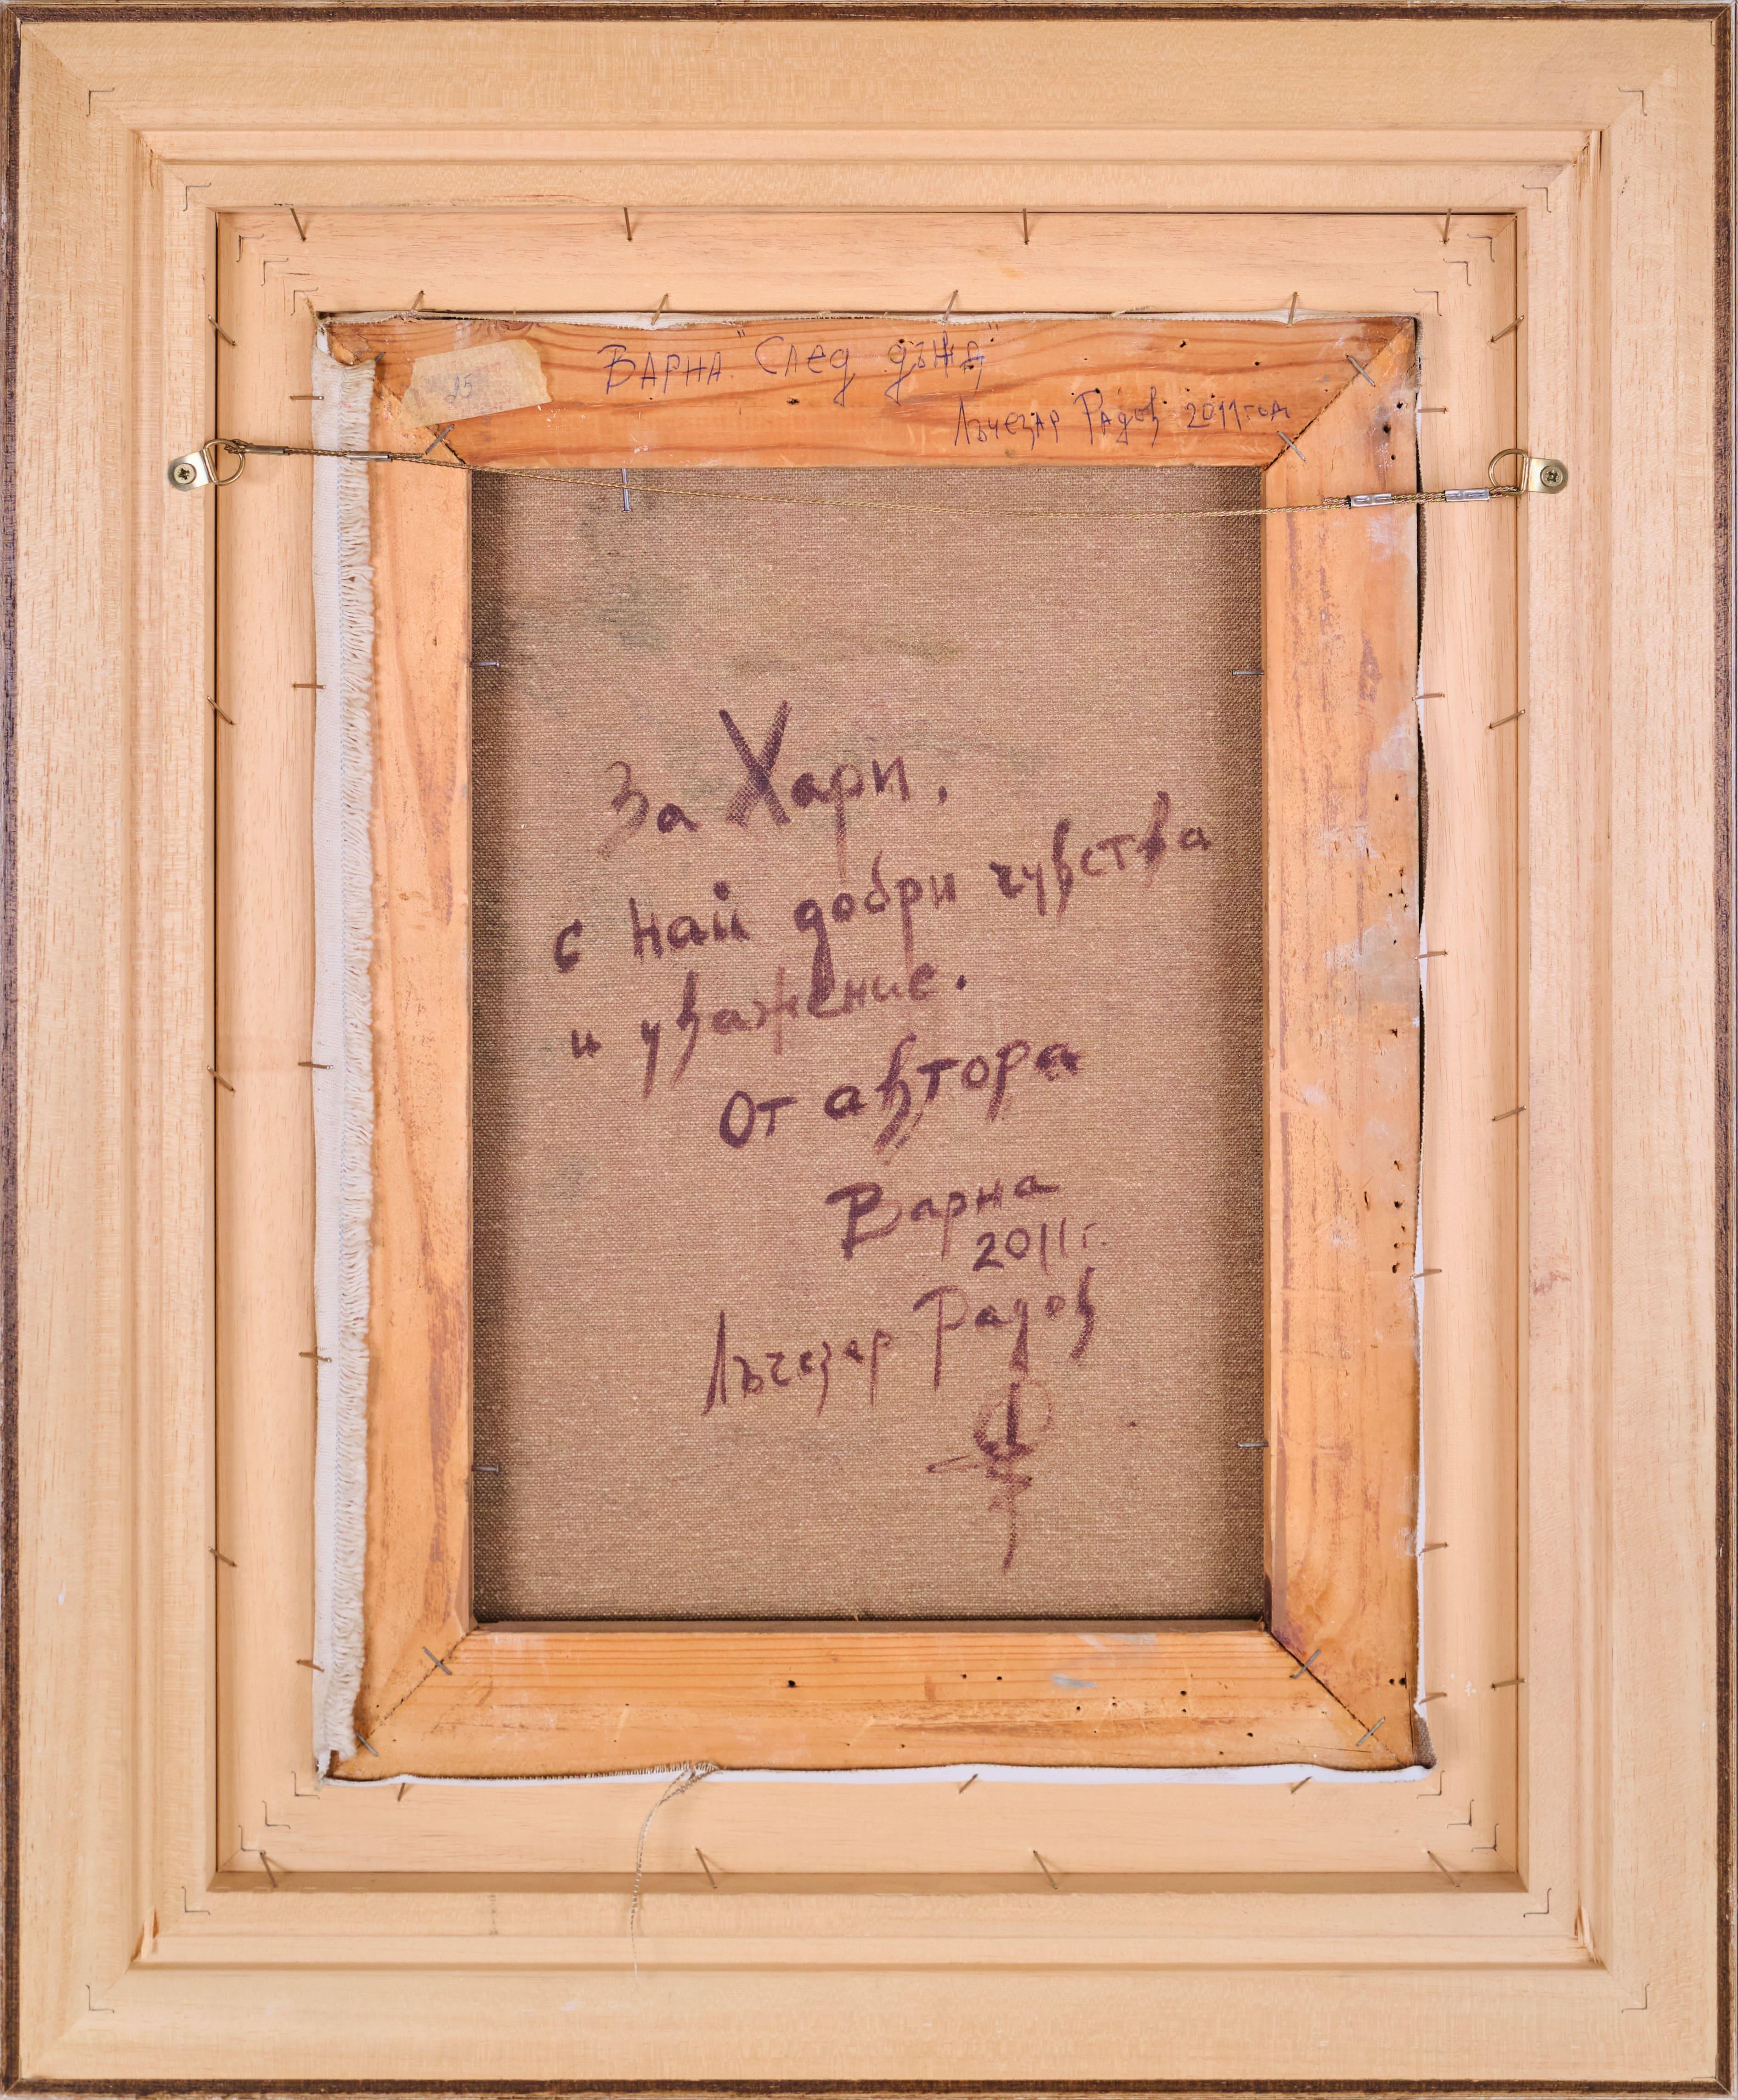 25
ВАРНА "След дъжд"
Лъчезар Радов 2011год
За Хари,
с най добри чувства
и уважение.
От автора
Варна
2011г.
Лъчезар Радов